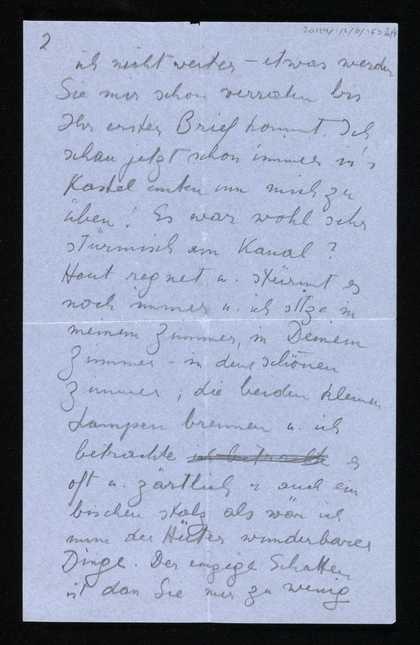 2
ich nicht weiter – etwas werden
Sie mir schon verraten bis
Ihr erster Brief kommt. Ich
schau jetzt schon immer in's
Kastel unten um mich zu
üben! Es war wohl sehr
stürmisch am Kanal?
Heut regnet u. stürmt es
noch immer u. ich sitze in
meinem Zimmer, in Deinem
Zimmer – in dem schönen
Zimmer, die beiden kleinen
Lampen brennen u. ich
betrachte ich betrachte es
oft u. zärtlich u auch ein
bischen stolz als wär ich
nun der Hüter wunderbarer
Dinge. Der einzige Schatten
ist dan Sie mir zu wenig